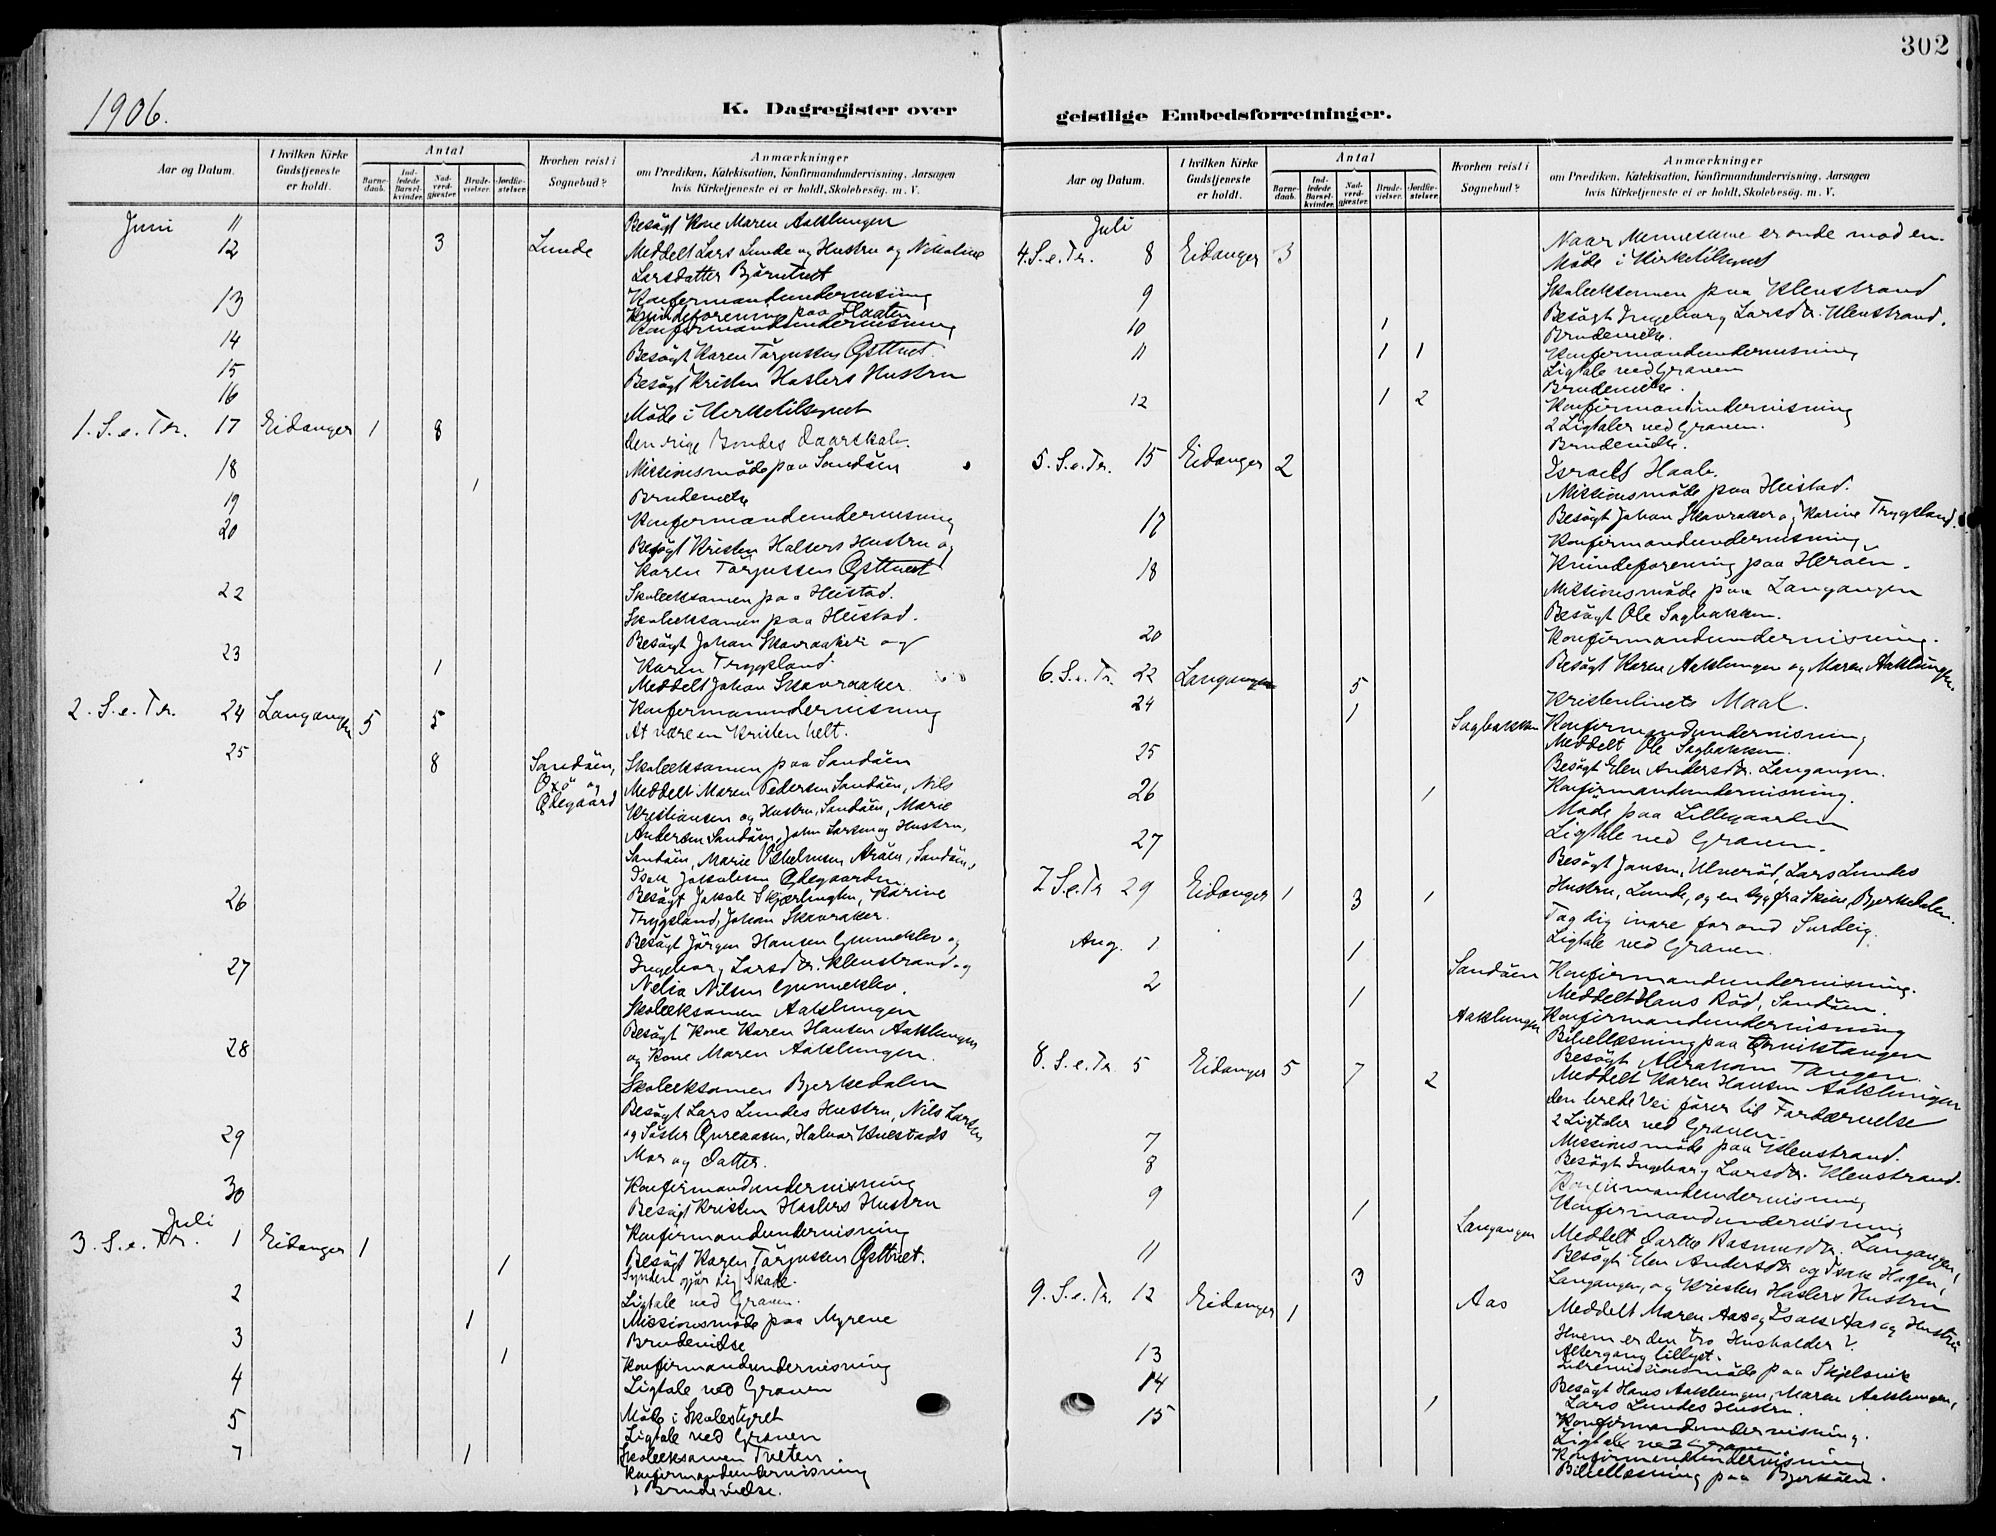 302
1906.
K. Dagregister over geistlige Embedsforretninger.
Aar og Datum.
I hvilken Kirke Gudstjeneste er holdt.
Antal
Barne-daab.
Ind-ledede Barsel-kvinder.
Nad-verd-gjæster.
Brude-vielser.
Jordfæ-stelser.
Hvorhen reist i Sognebud?
Anmærkninger
om Prædiken, Katekisation, Konfirmandundervisning, Aarsagen
hvis Kirketjeneste ei er holdt, Skolebesøg. m. V.
Juni 11 Besøgt Kone Maren Aaklungen
12 3 Lunde Meddelt Lars Lunde og Hustru og Nikoline
Larsdatter Bjørntvet
Konfirmandundervisning
13 Kvindeforening paa Flaaten
Konfirmandundervisning
14
Besøgt Karen Tärjussen Østtvet.
15 Besøgt Kristen Haslers Hustru
16
Møde i Kirketilsynet
1. S. e. Tr. 17 Eidanger 1 8 den rige Bondes Daarskab.
18 Missionsmøde paa Sandøen
1 Brudevielse
19 Konfirmandundervisning
20
Besøgt Kristen Haslers Hustru og
Karen Tärjussen Østtvet
22 Skoleeksamen paa Heistad.
Skoleeksamen paa Heistad.
Besøgt Johan Skavraaker og
23 1 Karen Trygsland
Meddelt Johan Skavraaker.
2. S. e. Tr. 24 Langangen 5 5 Konfirmanundervisning
At være en Kristen helt.
25 8 Sandøen, Skoleeksamen paa Sandøen
Oxø og Meddelt Maren Pedersen Sandøen, Nils
Ødegaard Kristiansen og Hustru, Sandøen, Marie
Andersen Sandøen, John Larsen og Hustru,
Sandøen, Marie Vilhelmsen Arøen, Sandøen,
Isak Jakobsen Ødegaarden
26 Besøgt Jakob Skjærlingen, Karine
Trygsland, Johan Skavraker.
Besøgt Jørgen Hansen Gunneklev og
27 Ingeborg Larsdtr. Klenstrand og
Nelia Nilsen Gunneklev.
Skoleeksamen Aaklungen
Besøgt Kone Karen Hansen Aaklungen
28 og Kone Maren Aaklungen.
Skoleeksamen Bjerkedalen
Besøgt Lars Lundes Hustru, Nils Larsen
29 og Søster, Halvor
Mor og Datter.
30 Konfirmandundervisning
Besøgt Kristen Haslers Hustru
Juli
3. S. e. Tr. 1 Eidanger 1 Konfirmandundervisning
1 Besøgt Karen Tärjussen Østtvet.
Synden gjør dig Skade.
2 Ligtale ved Graven.
1 Missionsmøde paa Myrene
3 Brudevielse
1 Konfirmandundervisning
4 Ligtale ved Graven
5 Møde i Skolestyret
Ligtale ved Graven
7 1 Skoleeksamen Tveten
Konfirmandundervisning
1 Brudevielse.
Aar og Datum.
I hvilken Kirke Gudstjeneste er holdt.
Antal
Barne-daab.
Ind-ledede Barsel-kvinder.
Nad-verd-gjæster.
Brude-vielser.
Jordfæ-stelser.
Hvorhen reist i Sognebud?
Anmærkninger
om Prædiken, Katekisation, Konfirmandundervisning, Aarsagen
hvis Kirketjeneste ei er holdt, Skolebesøg. m. V.
Juli
4. S. e. Tr. 8 Eidanger 3 Naar Menneskene er onde mod en.
Møde i Kirketilsynet
9 Skoleeksamen paa Klenstrand
10 1 Besøgt Ingeborg Larsdtr. Klenstrand.
Brudevielse.
11 1 1 Konfirmandundervisning
Ligtale ved Graven
Brudevielse.
12 1 2 Konfirmandundervisning
2 Ligtaler ved Graven.
Brudevielse.
5. S. e. Tr. 15 Eidanger 2 Israels Haab.
Missionsmøde paa Heistad.
17 Besøgt Johan Skavraker og Karine Trygsland.
Konfirmandundervisning
18 Kvindeforening paa Herøen.
Missionsmøde paa Langangen
Besøgt Ole Sagbakken.
20 Konfirmandundervisning.
Besøgt Karen Aaklungen og Maren Aaklungen.
6. S. e. Tr. 22 Langangen 5
Kristenlivets Maal.
24 1 Sagbakken Konfirmandundervisning
Meddelt Ole Sagbakken.
25 Besøgt Elen Andersdtr. Langangen.
26 1 Konfirmandundervisning.
Møde paa Lillegaarden
27 Ligtale ved Graven.
Besøgt Jansen, Lars Lundes
7 S. e. Tr 29 Eidanger 1 3 1 Hustru, Lunde, og en syg fra Skien, Bjerkedalen.
Tag dig ivare for ond Surdeig.
Ligtale ved Graven.
Aug. 1 1 Sandøen Konfirmandundervisning.
Meddelt Hans Rød, Sandøen.
2 1 Aaklungen Konfirmandundervisning
Bibellæsning paa Ørviktangen
Besøgt Abraham Tangen.
Meddelt Karen Hansen Aaklungen
8. S. e. Tr. 5 Eidanger 5 7 2 den brede Vei fører til Fordærvelse
2 Ligtaler ved Graven.
7 Missionsmøde paa Klenstrand.
8 Besøgt Ingeborg Larsdtr. Klenstrand.
Konfirmandundervisning
9 1 Konfirmandundervisning
Langangen Meddelt Dorthe Rasmusdtr. Langangen,
11 Besøgt Elen Andersdtr og Isak Hagen,
Langangen, og Kristen Haslers Hustru
3 Aas Meddelt Maren Aas og Isak Aas og Hustru
9. S. e. Tr. 12 Eidanger 1 Hvem er den tro Husholder?
Altergang tillyst.
13 Indremissionsmøde paa Skjelsvik
14 Besøgt Hans Aaklungen, Maren Aaklungen,
Lars Lundes Hustru.
15 1 Konfirmandundervisning.
Ligtale ved Graven.
Konfirmandundervisning
Bibellæsning paa Bjerkøen.